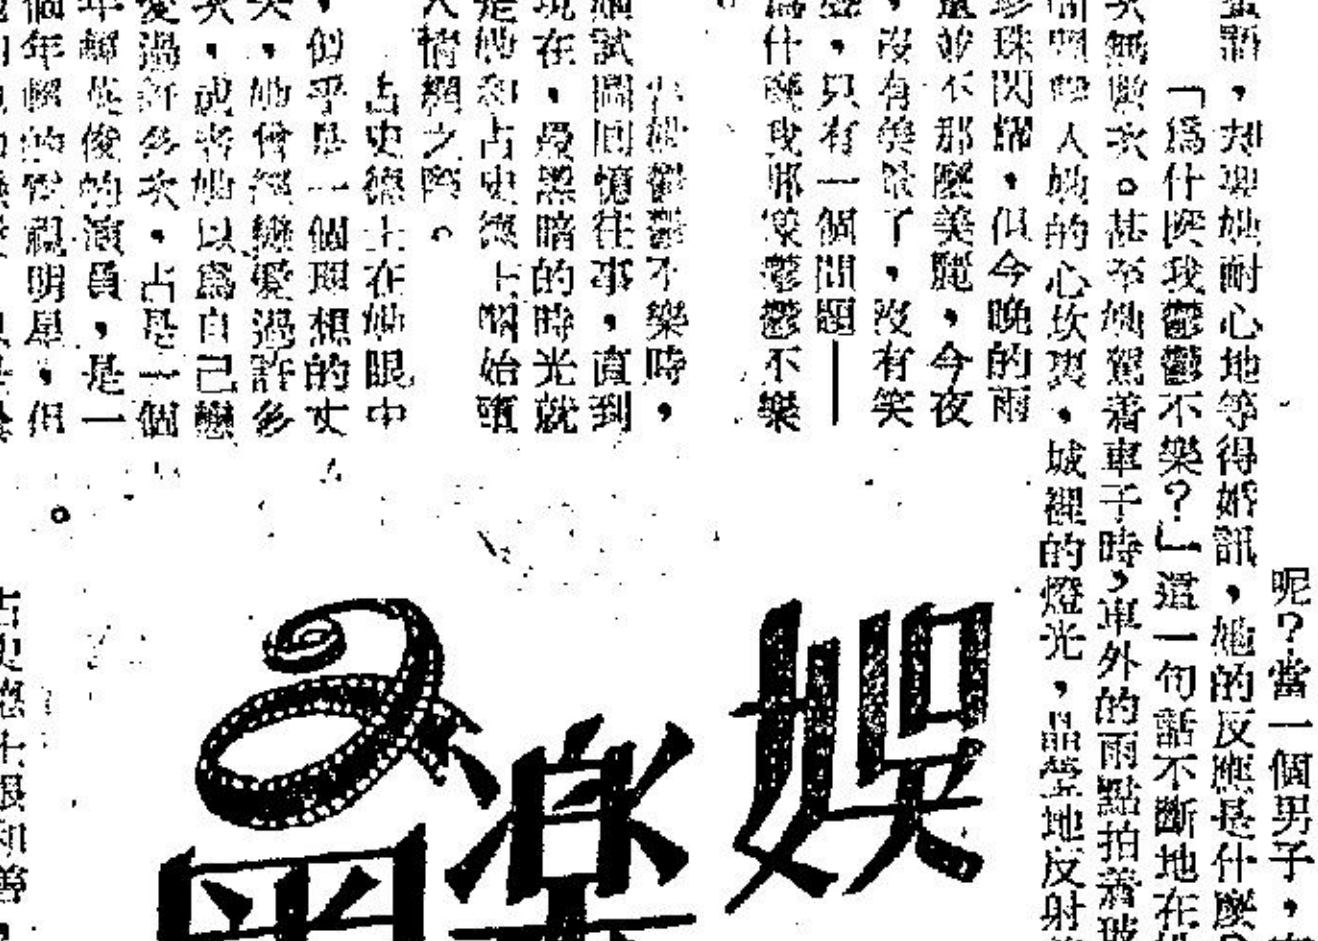 呢？當一個男子，
蜜語，却她耐心地等得婚訊，她的反應是什麽？
「爲什麽我鬱鬱不樂？」這一句話不斷地在
次無數次。甚至她駕着車子時，車外的雨點拍着玻
人她的心坎裏，城裡的燈光，晶瑩地反射
珍珠閃耀，但今晚的雨
並不那麽美麗，今夜
，沒有美景了，沒有笑
聲，只有一個問題——
爲什麽我那麽鬱鬱不樂
。
當她鬱鬱不樂時，
試圖回憶往事，直到
現在，最黑暗的時光就
是她和占史德上開始墮
入情網之際。
占史德上在她眼中
，似乎是一個理想的丈
夫，她曾經戀愛過許多
次，或者她以爲自己戀
愛過許多次，占是一個
年輕英俊的演員，是一
個年輕的電視明星，但
。
占史德上很和善，
娛樂